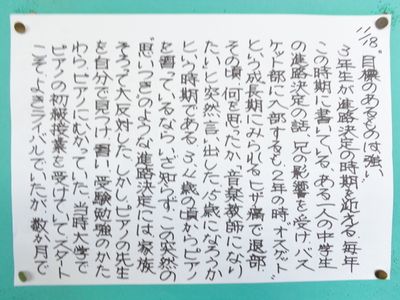 11/18 "目標のあるものは強い"
3年生が進路決定の時期を迎える。毎年
この時期に書いている、ある一人の中学生
の進路決定の話。兄の影響を受け、バス
ケット部に入部するも、2年の時、オスグット
という成長期にみられるヒザ痛で退部。
その頃、何を思ったか、音楽教師になり
たいと突然言い出した。15歳になろうか
という時期である。3、4歳の頃からピアノ
を習っているならいざ知らず、この突然の
思いつきのような進路決定には、家族
そろって大反対した。しかし、ピアノの先生
を自分で見つけ、習い、受験勉強のかた
わら、ピアノにむかっていた。当時大学で
ピアノの初級授業を受けていて、スタート
こそ、よきライバルでいたが、数か月で